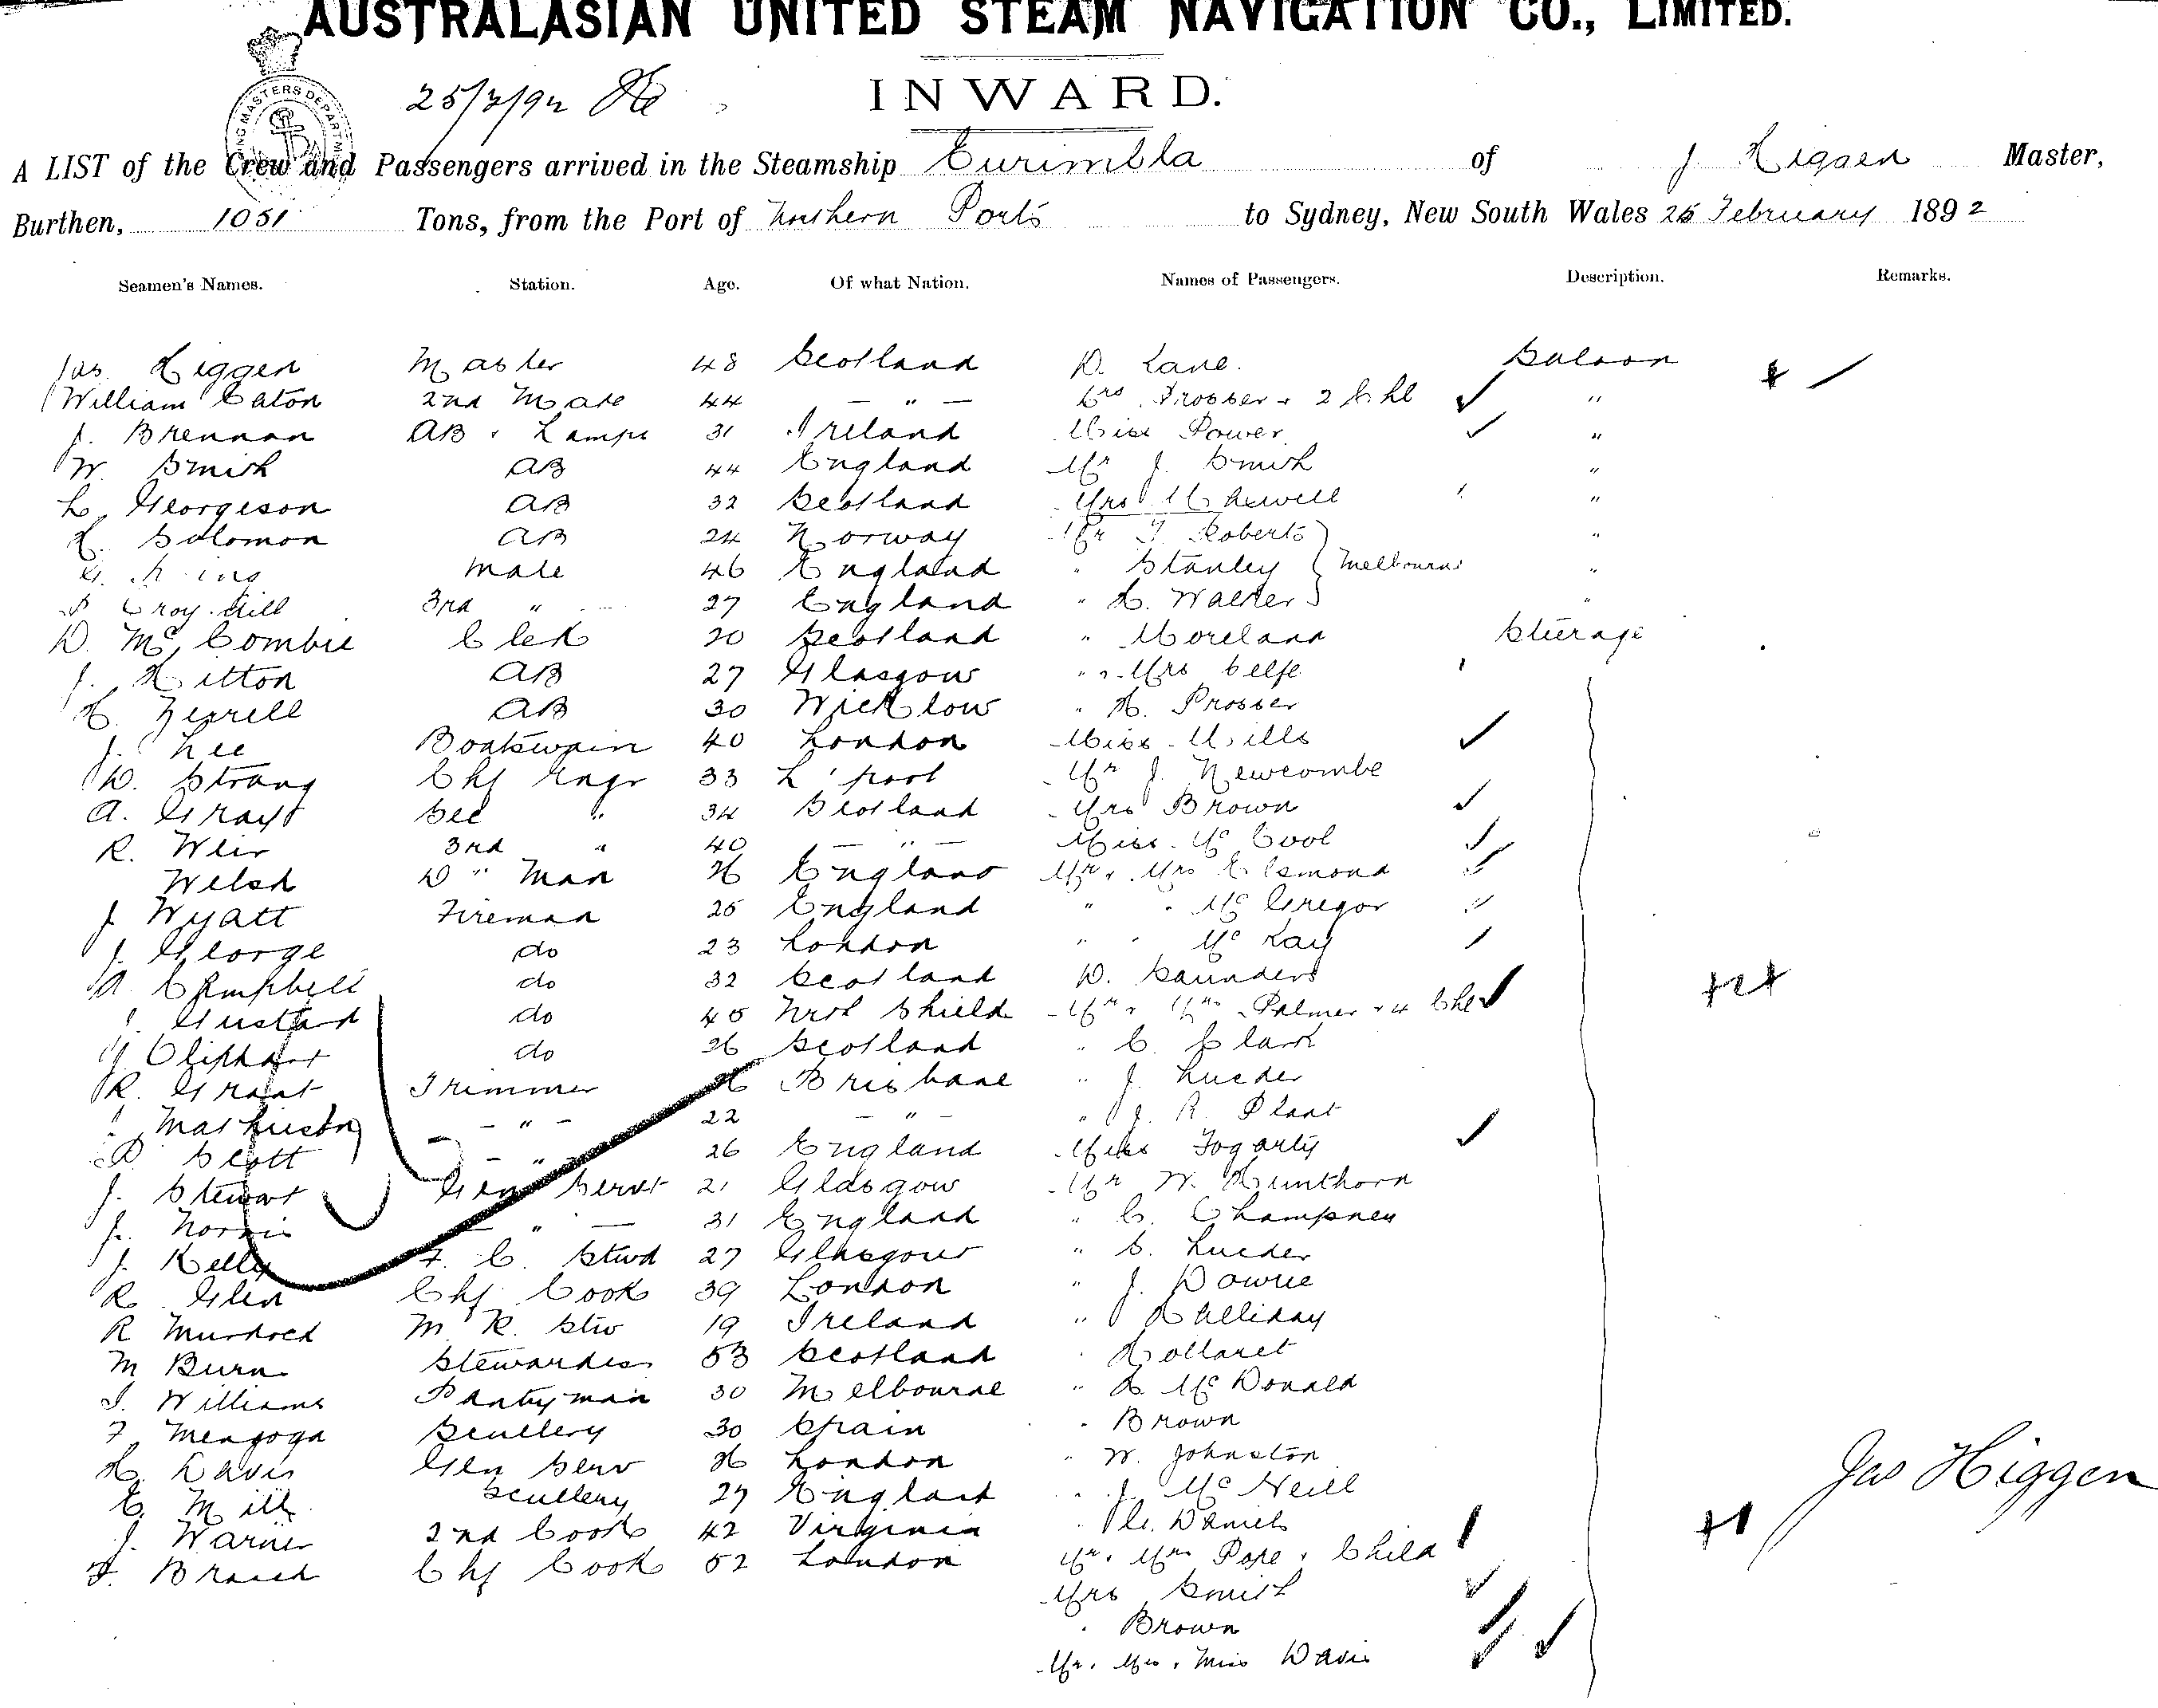 AUSTRALASIAN UNITED STEAM NAVIGATION CO., LIMITED.
INWARD.
25/2/92
A LIST of the Crew and Passengers arrived in the Steamship Eurimbla of J. Higgen Master,
Burthen, 1051 Tons, from the Port of Northern Ports to Sydney, New South Wales 25 February 1892
Seamen's Names. Station. Age. Of what Nation. Names of Passengers. Description. Remarks.
Jas. Higgen Master 48 Scotland D. Lane. Saloon
William Eaton 2nd Mate 44 — " — Mrs. Prosser + 2 Chl "
J. Brennan AB & Lamps 31 Ireland Miss Power "
W. Smith AB 44 England Mr J. Smith "
L. Georgeson AB 32 Scotland Mrs Maxwell "
H. Solomon AB 24 Norway Mr T. Roberts "
G. King Mate 46 England " Stanley } Melbourne "
Croy. Gill 3rd " 27 England " H. Walker "
D. McCombie Clek 20 Scotland " Moreland Steerage
J. Hitton AB 27 Glasgow " Mrs
AB 30 Wicklow " H. Prosser
J. Lee Boatswain 40 London Miss Mills
D. Strang Chf Engr 33 L'pool Mr J. Newcombe
A. Gray Sec " 34 Scotland Mrs Brown
R. Weir 3rd " 40 — " — Miss McCool
Welsh D " Man 26 England Mr & Mrs Esmond
J Wyatt Fireman 25 England " " McGregor
J. George do 23 London " " McKay
A. Campbell do 32 Scotland D. Saunders
Gustad do 45 Nrth Shield Mr & Mrs Palmer & 4 Chl
Oliphant do 26 Scotland " C. Clark
R. Grant Trimmer 26 Brisbane " J. Lueder
– " – 22 – " – " J. R. Plant
Scott – " – 26 England Miss Fogarty
J. Stewart Genl Servt 21 Glasgow Mr W. Hunthorn
J. Norris – " – 31 England " C. Champney
J. Kelly F. C. Stwd 27 Glasgow " S. Lueder
R. Glen Chf Cook 39 London " J. Downie
R Murdoch M. R. Stw 19 Ireland " Halliday
M Burn Stewardess 53 Scotland "
J. Williams Pantryman 30 Melbourne " H. McDonald
F. Scullery 30 Spain " Brown
H. Davis Gen Serv 26 London " W. Johnston
E. Mill Scullery 27 England " J. McNeill
J. Warner 2nd Cook 42 Virginia " Daniels
F. Chf Cook 52 London Mr & Mrs Pope & Child
Mrs Smith
" Brown
Mr. Mrs & Miss Davis
Jas Higgen